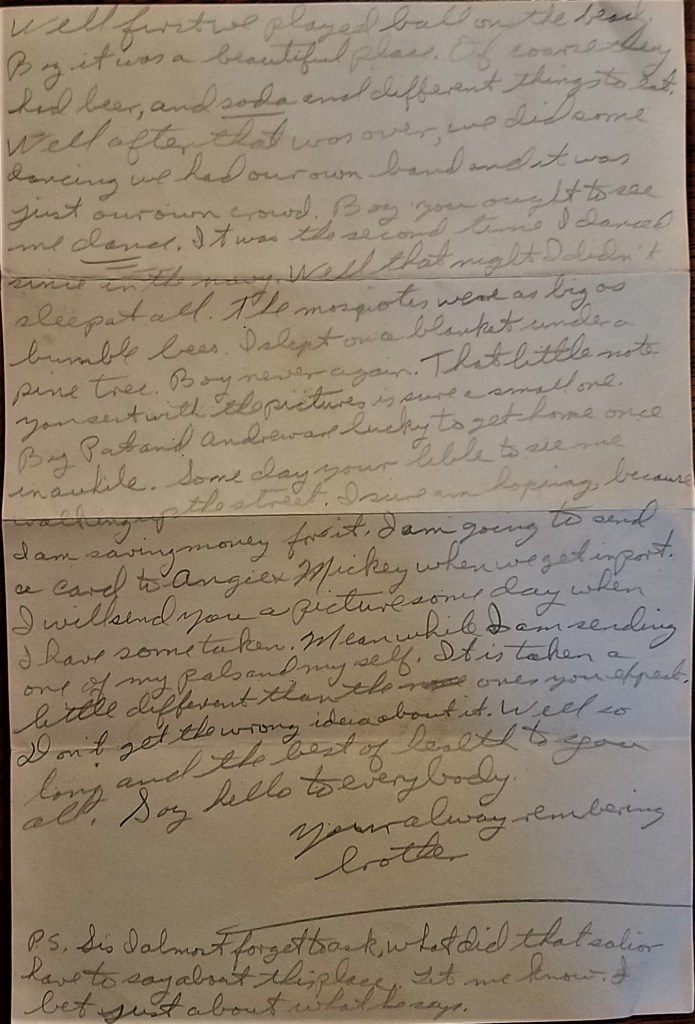 Well first we played ball on the beach.
Boy it was a beautiful place. Of coarse they
had beer, and soda and different things to eat.
Well after that was over, we did some
dancing we had our own band and it was
just our own crowd. Boy you ought to see
me dance. It was the second time I danced
since in the navy. Well that night I didn't
sleep at all. The mosqiotes were as big as
bumble bees. I slept on a blanket under a
pine tree. Boy never again. That little note
you sent with the pictures is sure a small one.
Boy Pat and Andrew are lucky to get home once
in awhile. Some day your lible to see me
walking up the street. I sure am hoping, because
I am saving money for it. I am going to send
a card to Angie & Mickey when we get in port.
I will send you a picture some day when
I have some taken. Mean while I am sending
one of my pals and my self. It is taken a
little different than the ones you expect.
Don't get the wrong idea about it. Well so
long and the best of health to you
all. Say hello to everybody.
Your alway rembering
brother
P.S. Sis I almost forget to ask, what did that salior
have to say about this place. Let me know. I
bet just about what he says.